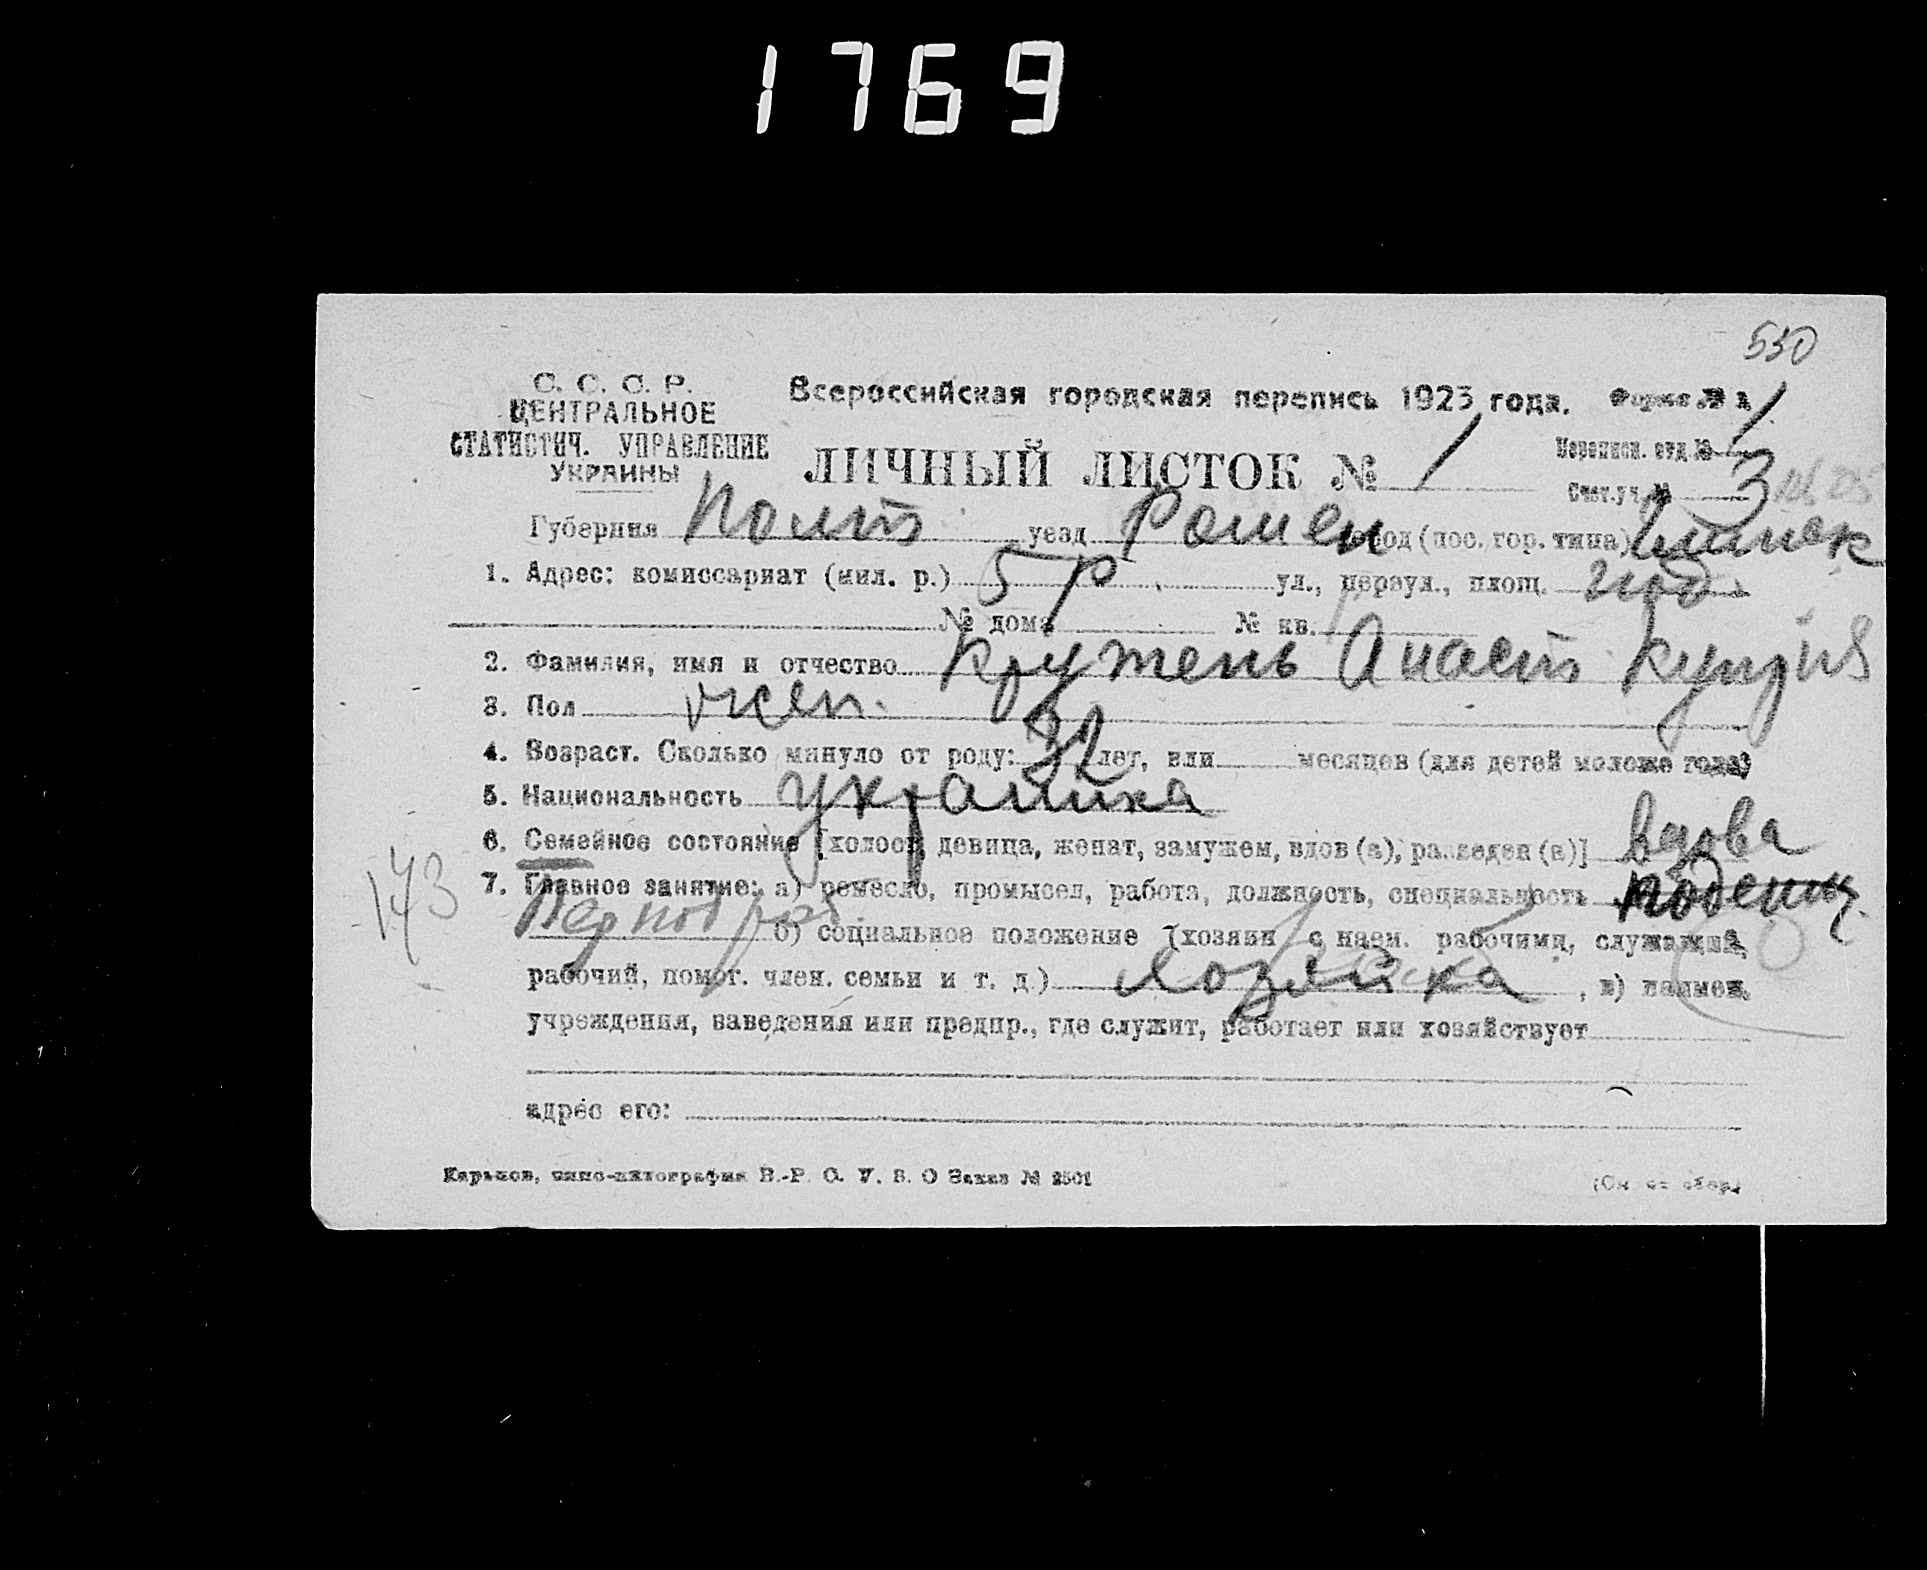 1769
550
С. С. С. Р.
ЦЕНТРАЛЬНОЕ
СТАТИСТИЧ. УПРАВЛЕНИЕ
УКРАИНЫ
Всероссийская городская перепись 1923 года. Форма № 1
ЛИЧНЫЙ ЛИСТОК № 1
Переписн. отд. № 1
Счет. уч. № 3
Губерния Полт уезд Ромен город (пос. гор. типа)
1. Адрес: комиссариат (мил. р.) 5 р ул., переул., площ.
№ дома № кв.
2. Фамилия, имя и отчество Крутень Анаст
3. Пол жен.
4. Возраст. Сколько минуло от роду: 32 лет, или месяцев (для детей моложе года)
5. Национальность Украинка
6. Семейное состояние [холост, девица, женат, замужем, вдов (а), разведен (а)] вдова
7. Главное занятие: а) ремесло, промысел, работа, должность, специальность поденщ.
б) социальное положение (хозяин с наем. рабочими, служащий,
рабочий, помог. член. семьи и т. д.) хозяйка, в) наимен.
учреждения, заведения или предпр., где служит, работает или хозяйствует
адрес его:
143
Харьков, типо-литография В.-Р. С. У. В. О Заказ № 2501
(См. на обор.)